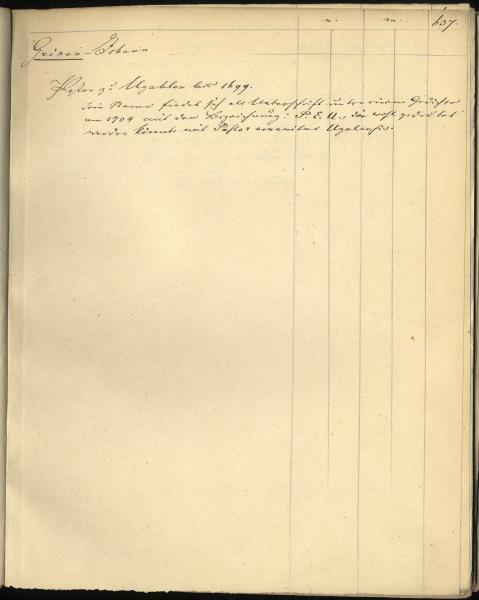 n. m. 637.
Geizen Johann
Pastor zu Ugahlen bis 1699.
Sein Name findet sich als Unterschrift unter einem Gedichte
um 1704 mit der Bezeichnung: P. E. U., die wohl gedeutet
werden könnte mit Pastor emeritus Ugalensis.